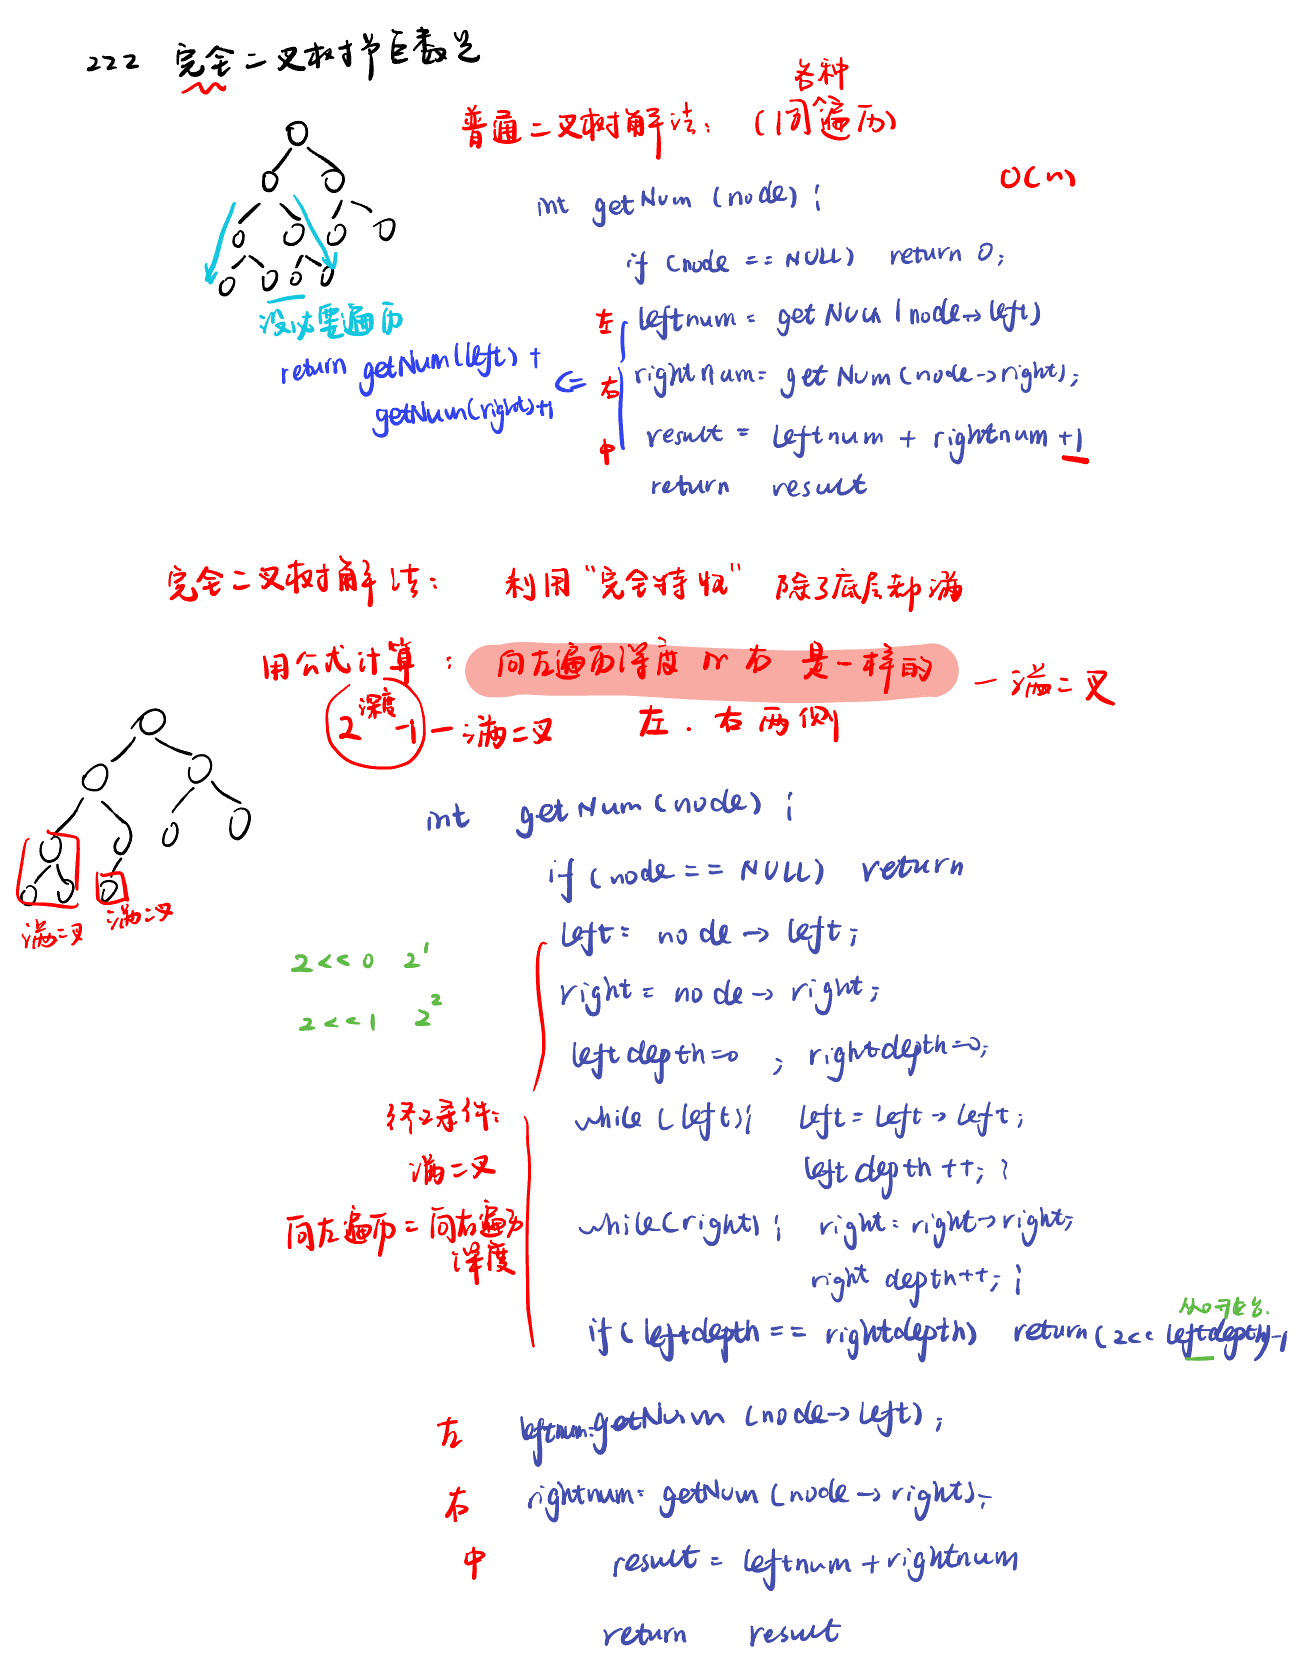 222 完全二叉树节点数量
普通二叉树解法: (1何遍历)
各种
O(n)
int getNum (node) {
if (node == NULL) return 0;
左 leftnum = getNum (node→left)
右 rightnum = getNum (node→right);
中 result = leftnum + rightnum +1
return result
没必要遍历
return getNum(left) +
getNum(right)+1
<=
完全二叉树解法: 利用“完全特性” 除了底层都满
用公式计算: 向左遍历深度 or 右 是一样的 — 满二叉
2^深度 -1 — 满二叉 左、右两侧
满二叉 满二叉
int getNum (node) {
if (node == NULL) return
left = node → left;
right = node → right;
left depth=0 ; rightdepth=0;
2<<0 2^1
2<<1 2^2
while (left){ left = left → left;
left depth ++; }
while(right) { right = right→right;
right depth++; }
if (leftdepth == rightdepth) return (2<< leftdepth)-1
从0开始.
终止条件:
满二叉
向左遍历 = 向右遍历
深度
左 leftnum=getNum (node→left);
右 rightnum= getNum (node→right);
中 result = leftnum + rightnum
return result